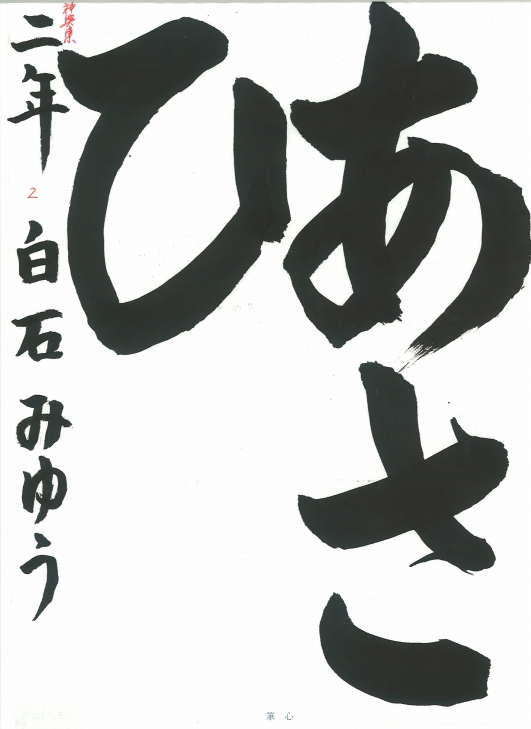 あさ
ひ
二年 2 白石みゆう
筆心